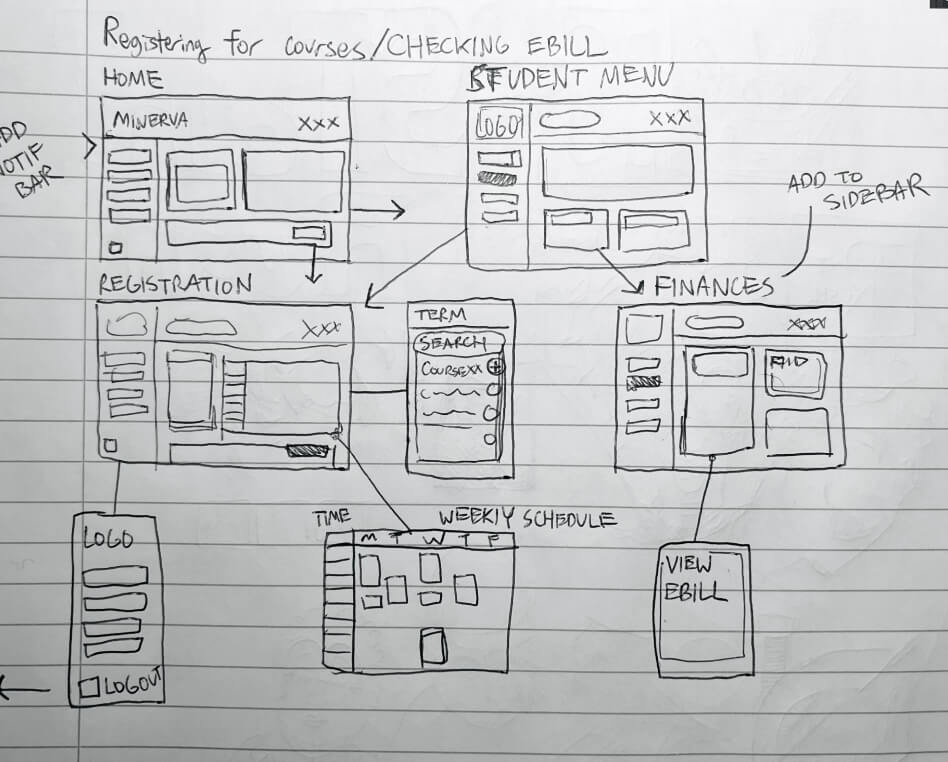 Registering for courses/CHECKING EBILL
HOME
STUDENT MENU
MINERVA XXX
LOGO XXX
ADD
NOTIF
BAR
ADD TO
SIDEBAR
REGISTRATION
FINANCES
XXX
TERM
SEARCH
COURSEXX
XXXX
AID
LOGO
LOGOUT
TIME WEEKLY SCHEDULE
M T W T F
VIEW
EBILL